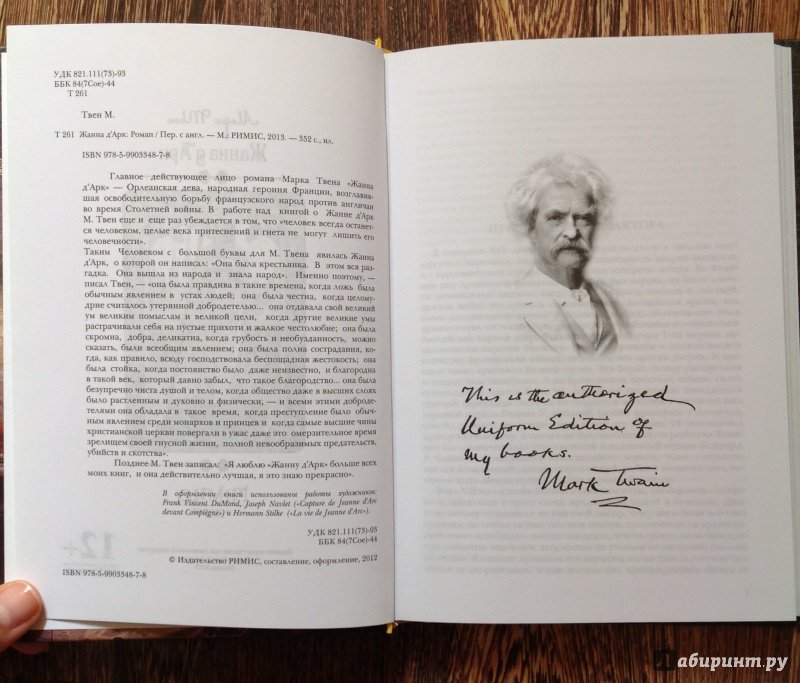 УДК 821.111(73)-93
ББК 84(7Сое)-44
Т 261
Твен М.
Т 261 Жанна д'Арк: Роман / Пер. с англ. — М.: РИМИС, 2013. — 352 с., ил.
ISBN 978-5-9903348-7-8
Главное действующее лицо романа Марка Твена «Жанна
д'Арк» — Орлеанская дева, народная героиня Франции, возглавив-
шая освободительную борьбу французского народ против англичан
во время Столетней войны. В работе над книгой о Жанне д'Арк
М. Твен еще и еще раз убеждается в том, что «человек всегда останет-
ся человеком, целые века притеснений и гнета не могут лишить его
человечности».
Таким Человеком с большой буквы для М. Твена явилась Жанна
д'Арк, о которой он написал: «Она была крестьянка. В этом вся раз-
гадка. Она вышла из народа и знала народ». Именно поэтому, —
писал Твен, — «она была правдива в такие времена, когда ложь была
обычным явлением в устах людей; она была честна, когда целому-
дрие считалось утерянной добродетелью... она отдавала свой великий
ум великим помыслам и великой цели, когда другие великие умы
растрачивали себя на пустые прихоти и жалкое честолюбие; она была
скромна, добра, деликатна, когда грубость и необузданность, можно
сказать, были всеобщим явлением; она была полна сострадания, ког-
да, как правило, всюду господствовала беспощадная жестокость; она
была стойка, когда постоянство было даже неизвестно, и благородна
в такой век, который давно забыл, что такое благородство... она была
безупречно чиста душой и телом, когда общество даже в высших слоях
было растленным и духовно и физически, — и всеми этими доброде-
телями она обладала в такое время, когда преступление было обыч-
ным явлением среди монархов и принцев и когда самые высшие чины
христианской церкви повергали в ужас даже это омерзительное время
зрелищем своей гнусной жизни, полной невообразимых предательств,
убийств и скотства».
Позднее М. Твен записал: «Я люблю «Жанну д'Арк» больше всех
моих книг, и она действительно лучшая, я это знаю прекрасно».
В оформлении книги использованы работы художников:
Frank Vincent DuMond, Joseph Navlet («Capture de Jeanne d'Arc
devant Compiègne») и Hermann Stilke («La vie de Jeanne d'Arc»).
УДК 821.111(73)-93
ББК 84(7Сое)-44
12+
© Издательство РИМИС, составление, оформление, 2012
ISBN 978-5-9903348-7-8
This is the authorized
Uniform Edition of
my books.
Mark Twain
Лабиринт.ру